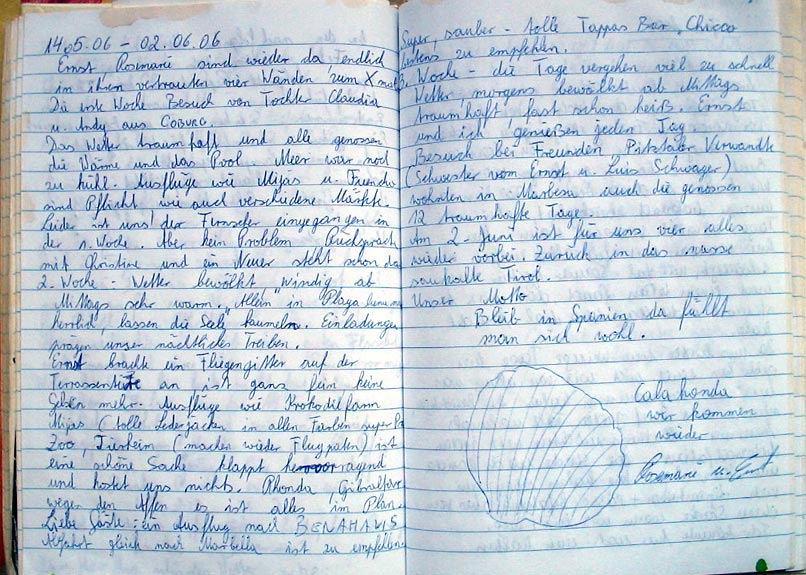 14.5.06 - 02.06.06
Ernst Rosemarie sind wieder da endlich
in ihren vertrauten vier Wänden zum X mal
Die erste Woche Besuch von Tochter Claudia
u. Andy aus COBURG.
Das Wetter traumhaft und alle genossen
die Wärme und das Pool. Meer war noch
zu kühl. Ausflüge wie Mijas u.
sind Pflicht wie auch verschiedene Märkte.
Leider ist uns der Fernseher eingegangen in
der 1. Woche. Aber kein Problem Rücksprache
mit Christine und ein Neuer steht schon da
2. Woche - Wetter bewölkt windig ab
Mittags sehr warm. "Allein" in Playa
herrlich, lassen die Seele baumeln. Einladungen
prägen unser nächtliches Treiben.
Ernst brachte ein Fliegengitter auf der
Terrassentüre an ist ganz fein keine
Gelsen mehr. Ausflüge wie Krokodilfarm
Mijas (tolle Lederjacken in allen Farben super
Zoo, Tierheim (machen wieder Flugpaten) ist
eine schöne Sache klappt hervorragend
und kostet uns nichts. Rhonda, Gibraltar
wegen den Affen es ist alles im Plan.
Liebe Gäste: ein Ausflug nach BENAHAVIS
Abfahrt gleich nach Marbella ist zu empfehlen
Super, sauber - tolle Tappas Bar, Chicco
bestens zu empfehlen.
3. Woche - die Tage vergehen viel zu schnell
Wetter, morgens bewölkt ab Mittags
traumhaft, fast schon heiß. Ernst
und ich genießen jeden Tag.
Besuch bei Freunden Pitztaler Verwandte
(Schwester vom Ernst u. Luis Schwager)
wohnten in Marbesa auch die genossen
12 traumhafte Tage.
Am 2. Juni ist für uns vier alles
wieder vorbei. Zurück in das nasse
saukalte Tirol.
Unser Motto
Bleib in Spanien da fühlt
man sich wohl.
Calahonda
wir kommen
wieder
Rosemarie u. Ernst